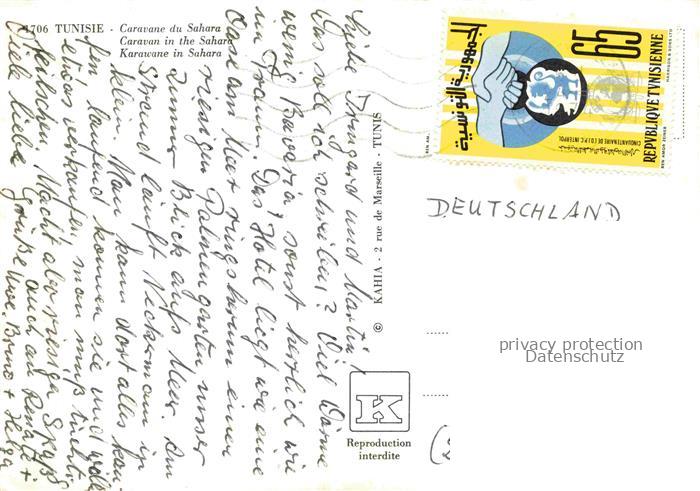 4706 TUNISIE - Caravane du Sahara
Caravan in the Sahara
Karawane in Sahara
الجمهورية التونسية
65
REPVBLIQVE TVNISIENNE
CINQUANTENAIRE DE L'O.I.P.C. INTERPOL
DEUTSCHLAND
privacy protection
Datenschutz
© KAHIA - 2 rue de Marseille - TUNIS
K
Reproduction
interdite
Liebe Irmgard und Martin!
Was soll ich schreiben? Viel Wärme
wenig Bavaria sonst herrlich wie
im Traum. Das Hotel liegt wie eine
Oase am Meer ringsherum einen
riesigen Palmengarten unser
Zimmer Blick aufs Meer. Am
Strand läuft Neckermann in
Man kann dort alles kau-
fen laufend kommen sie und wollen
etwas verkaufen man muß tüchtig
feilschen. Macht aber riesigen Spaß
Viele liebe Grüße auch an Renate +
Uwe. Bruno + Helga